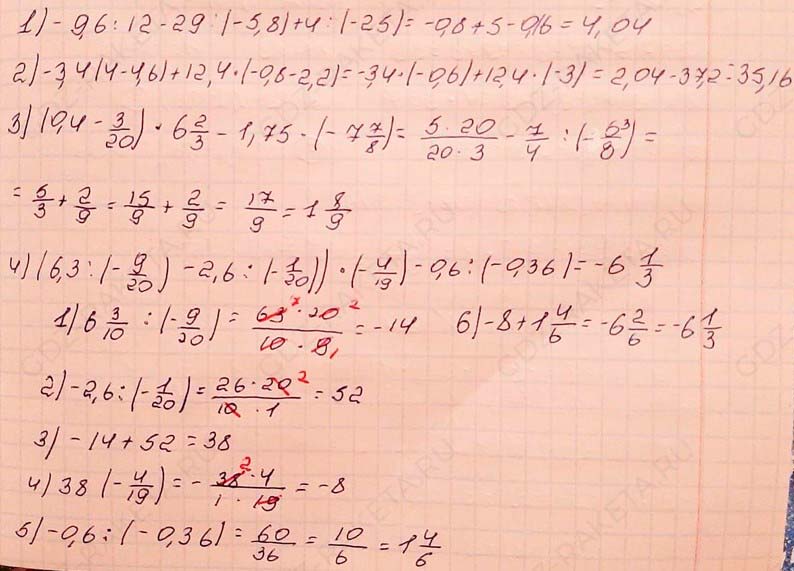 1) -9,6 : 12 - 29 : (-5,8) + 4 : (-25) = -0,8 + 5 - 0,16 = 4,04
2) -3,4 (4 - 4,6) + 12,4 · (-0,8 - 2,2) = -3,4 · (-0,6) + 12,4 · (-3) = 2,04 - 37,2 = 35,16
3) (0,4 - 3/20) · 6 2/3 - 1,75 · (-7 7/8) = 5 · 20/20 · 3 - 7/4 : (-6³/8) =
= 5/3 + 2/9 = 15/9 + 2/9 = 17/9 = 1 8/9
4) (6,3 : (-9/20) - 2,6 : (-1/20)) · (-4/19) - 0,6 : (-0,36) = -6 1/3
1) 6 3/10 : (-9/20) = 63 ⁷ · 20 ²/10 · 9 ₁ = -14 6) -8 + 1 4/6 = -6 2/6 = -6 1/3
2) -2,6 : (-1/20) = 26 · 20 ²/10 · 1 = 52
3) -14 + 52 = 38
4) 38 (-4/19) = - 38 ² · 4/1 · 19 = -8
5) -0,6 : (-0,36) = 60/36 = 10/6 = 1 4/6
GDZ-RAKETA.RU